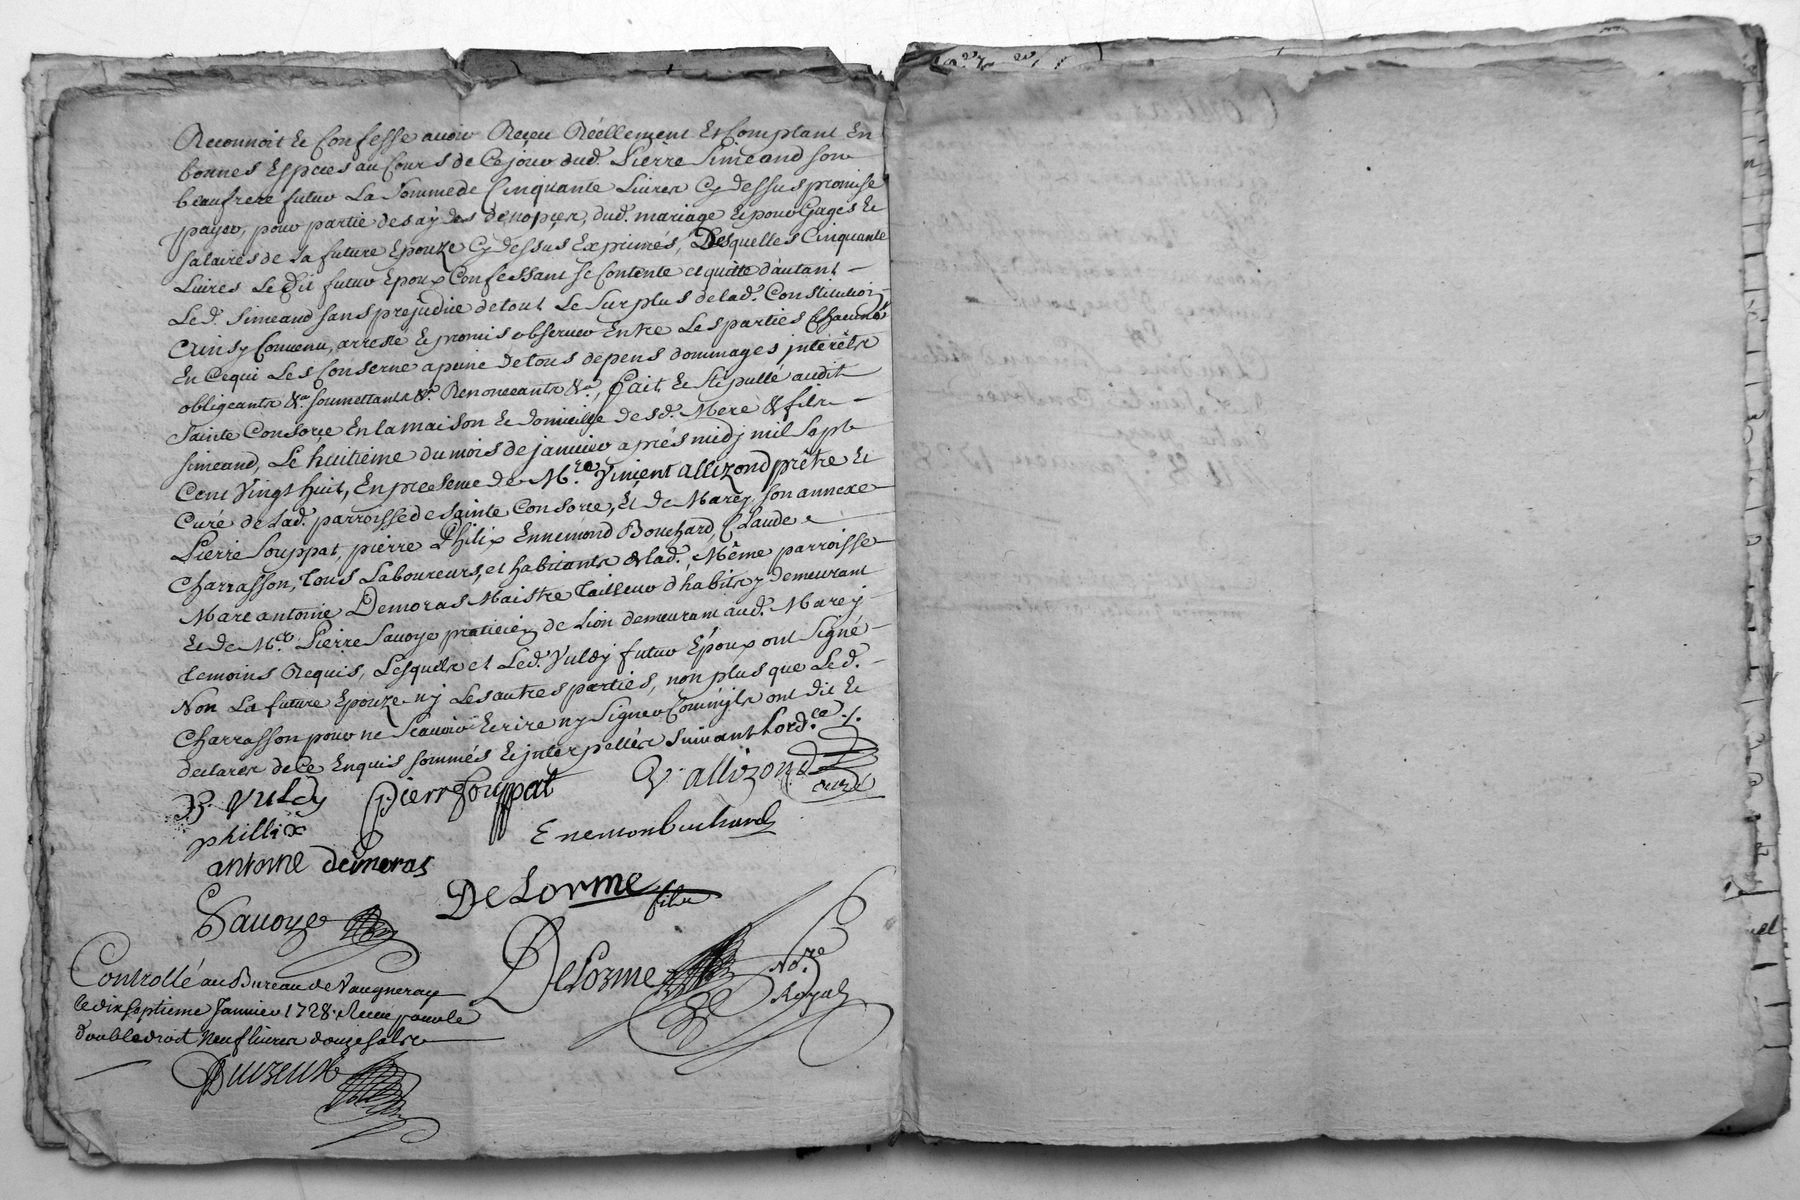 Reconnoit et Confesse avoir Reçeu Réellement Et Comptant En
bonnes Especes au Cours de Ce jour dud. Pierre Simeand son
beaufrere futur La Somme de Cinquante Livres Cy dessus promise
payer, pour partie des aÿdes de nopçes, dud. mariage et pour Gages Et
Salaires de La future Epouze Cy dessus Exprimés, Desquelles Cinquante
Livres Le Dit futur Epoux Confessant se Contente et quitte d'autant
Led. Simeand sans prejudice de tout Le Surplus de lad. Constitution
Ainsy Convenu, arresté et promis observer Entre Les parties Chacune
En Cequi Les Conserne a peine de tous depens dommages intérêts
obligeants &a. soumettants &a. Renonceants &a., fait Et Stipullé audit
Sainte Consorce En la maison et domicille desd. Mere & fils
Simeand, Le huitiéme du mois de janvier aprés midj mil Sept
Cent Vingt huit, En presence de Mre. Vincent allizond prêtre Et
Curé de Lad. parroisse de Sainte Consorce, Et de Marcy son annexe
Pierre Souppat, pierre Philix Ennemond Bouchard, Claude
Charrasson, tous Laboureurs, et habitants de lad. Même parroisse
Marc antoine Demoras Maistre tailleur d'habits y demeurant
Et de Me. Pierre Savoye praticien de Lion demeurant aud. Marcy
temoins Requis, Lesquels et Led. Vuldy futur Époux ont Signé
Non La future Epouze ny Les autres parties, non plus que Led.
Charrasson pour ne Scavoir Ecrire ny Signer Comm'ils ont dit Et
declarer de Ce Enquis sommés et interpellés suivant Lord.ce ./.
B. Vuldy Pierre Souppat V. allizond curé
phillix Enemon buchard
antonne deimoras
DeLorme fils
Savoye
DeLorme No.re Royal
Controllé au Bureau de Vaugneray
le dix septieme Janvier 1728. Receu pour le
double droit neuf livres douze sols
Duizeux